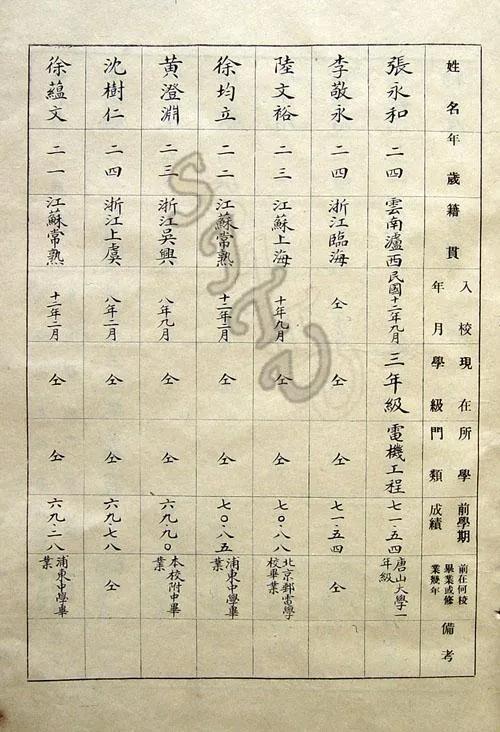 姓名 年歲 籍貫 入校年月 現在學級 所學門類 前學期成績 前在何校畢業或修業幾年 備考
張永和 二四 雲南瀘西 民國十二年九月 三年級 電機工程 七一·五四 唐山大學一年級
李敬永 二四 浙江臨海 仝 仝 仝 七一·五四 仝
陸文裕 二三 江蘇上海 十年九月 仝 仝 七〇·八八 北京郵電學校畢業
徐均立 二二 江蘇常熟 十一年二月 仝 仝 七〇·八五 浦東中學畢業
黃澄淵 二三 浙江吳興 八年九月 仝 仝 六九·九〇 本校附中畢業
沈樹仁 二四 浙江上虞 八年二月 仝 仝 六九·七八 仝
徐蘊文 二一 江蘇常熟 十一年二月 仝 仝 六九·二八 浦東中學畢業